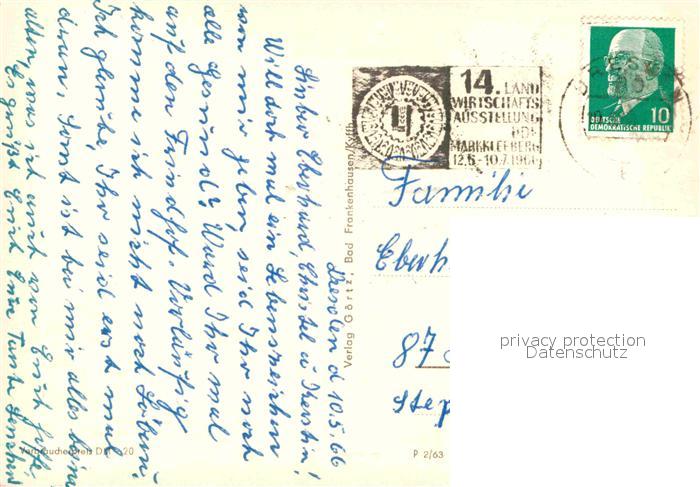 Dresden d 10.5.66
Lieber Eberhard, Christel u Kerstin!
Will dort mal ein Lebenszeichen
von mir geben, seid Ihr noch
alle gesund? Ward Ihr mal
auf den Friedhof. Vorläufig
komme ich nicht nach Löbau.
Ich glaube, Ihr seid erst mal
dran. Sonst ist bei mir alles beim
alten, was ich auch von Euch hoffe.
Es grüßt Euch Eure Tante
Verlag Görtz, Bad Frankenhausen/Kyffh.
14. LAND
WIRTSCHAFTS
AUSSTELLUNG
DDR
MARKKLEEBERG
12.6.-10.7.1966
DRESDEN
10
DEUTSCHE
DEMOKRATISCHE REPUBLIK
Familie
Eberh
87
Step
privacy protection
Datenschutz
Verbraucherpreis DM -,20
P 2/63